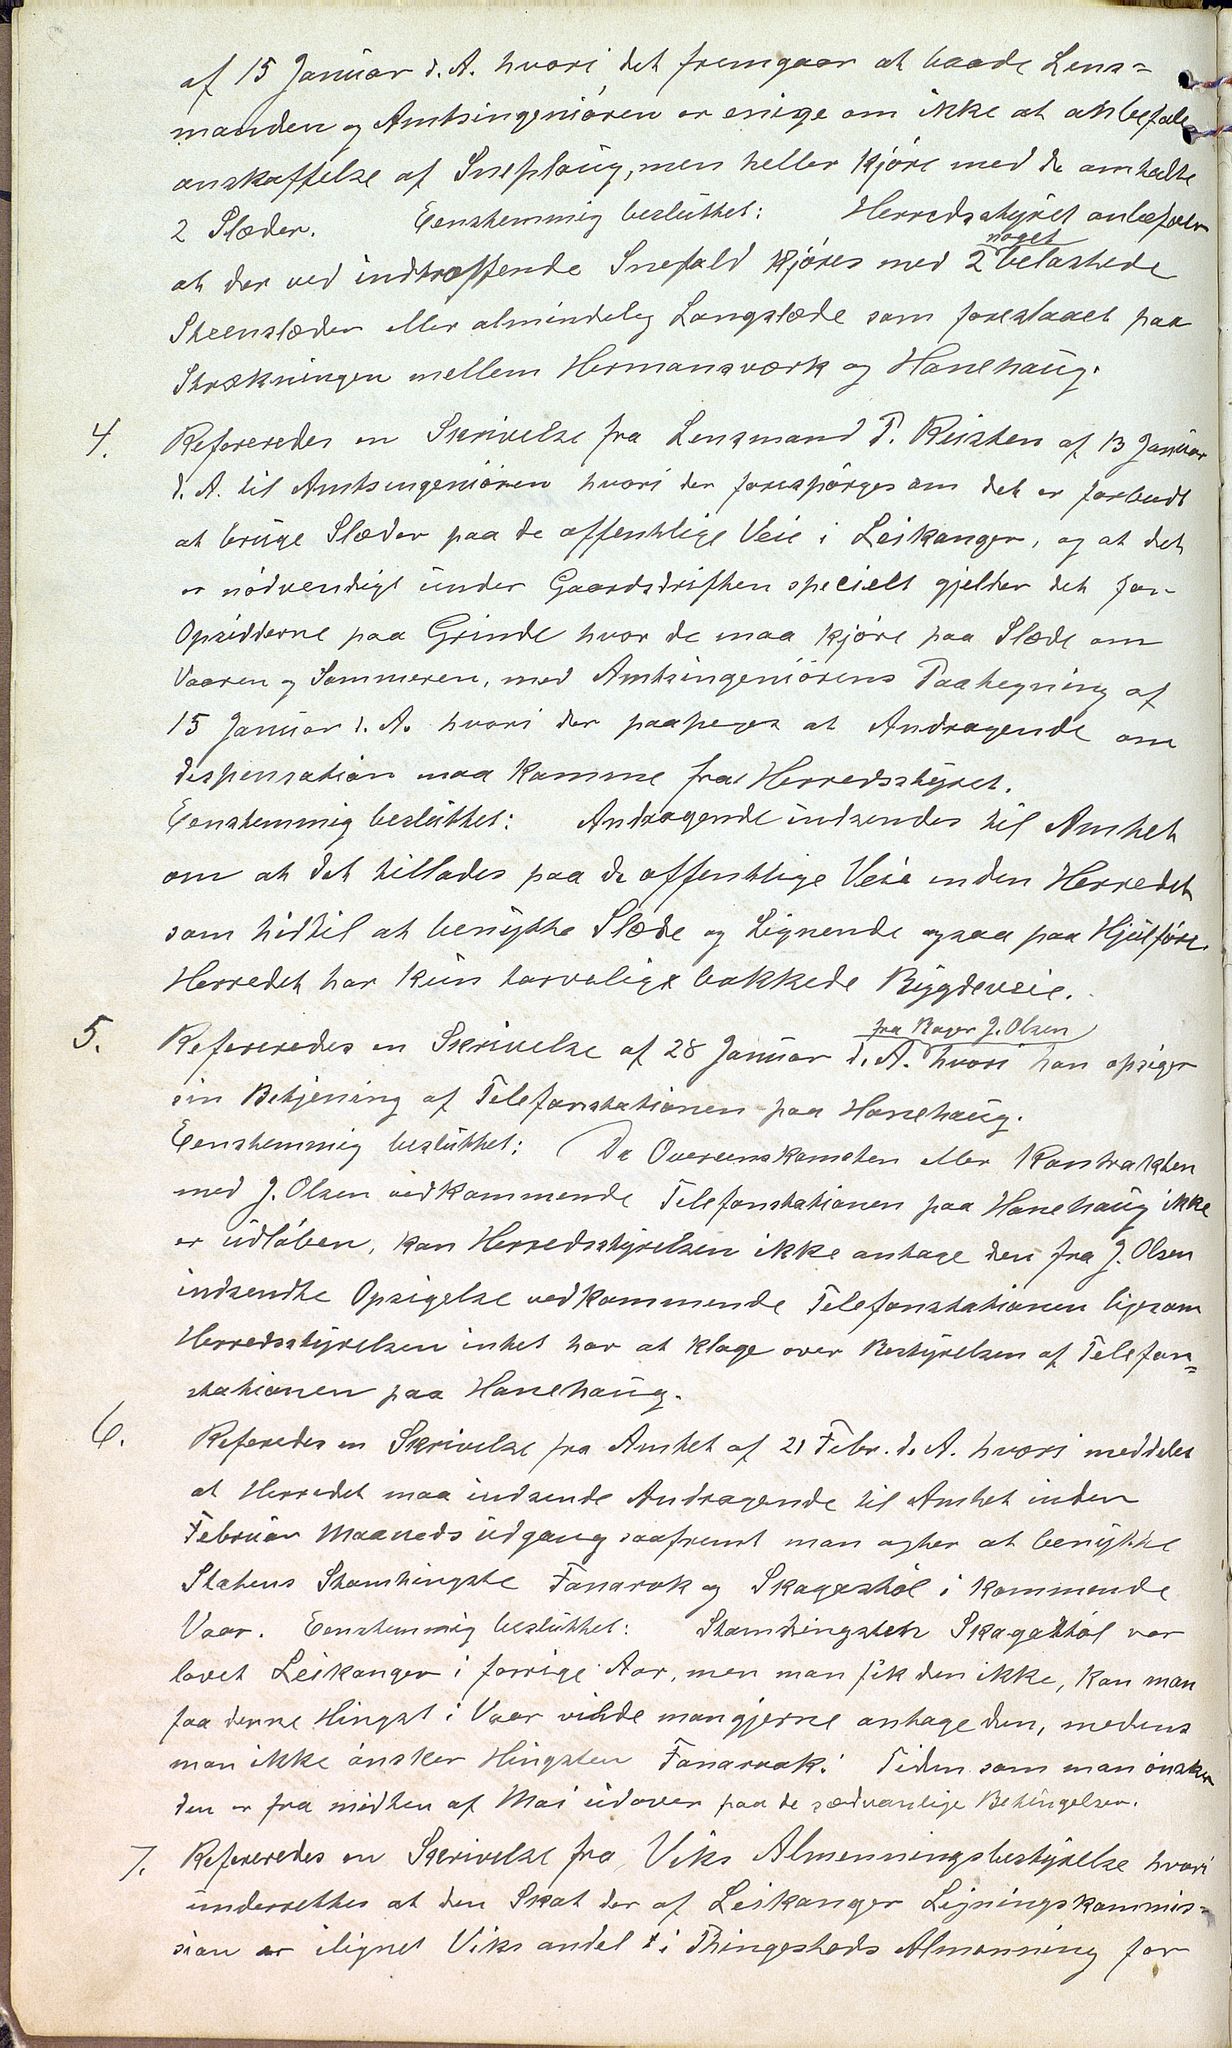 af 15 Januar d. A. hvori det fremgaar at baade Lens=
manden og Amtsingeniøren er enige om ikke at anbefale
anskaffelse af Sneploug, men heller kjøre med de omtalte
2 Slæder. Eenstemmig besluttet: Herredsstyret anbefaler
noget
at der ved indtræffende Snefald kjøres med 2 belastede
Steenslæder eller almindelig Langslæde som foreslaaet paa
Strækningen mellem Hermansværk og Hanehaug.
4. Refereredes en Skrivelse fra Lensmand T. Reisten af 13 Januar
d. A. til Amtsingeniøren hvori der forespørges om det er forbudt
at bruge Slæder paa de offentlige Veie i Leikanger, og at det
er nødvendigt under Gaardsdriften specielt gjelder det for
Opsidderne paa Grinde hvor de maa kjøre paa Slæde om
Vaaren og Sommeren, med Amtsingeniørens Paategning af
15 Januar d. A. hvori der paapeges at Andragende om
dispensation maa komme fra Herredsstyret.
Eenstemmig besluttet: Andragende indsendes til Amtet
om at det tillades paa de offentlige Veie inden Herredet
som hidtil at benytte Slæde og Lignende ogsaa paa Hjulføre.
Herredet har kun tarvelige bakkede Bygdeveie.
fra Roger J. Olsen
5. Refereredes en Skrivelse af 28 Januar d. A. hvori han opsiger
sin Betjening af Telefonstationen paa Hanehaug.
Eenstemmig besluttet: Da Overenskomsten eller Kontrakten
med J. Olsen vedkommende Telefonstationen paa Hanehaug ikke
er udløben, kan Herredsstyrelsen ikke antage den fra J. Olsen
indsendte Opsigelse vedkommende Telefonstationen ligesom
Herredsstyrelsen intet har at klage over Bestyrelsen af Telefon=
stationen paa Hanehaug.
6. Referedes en Skrivelse fra Amtet af 21 Febr. d. A. hvori meddeles
at Herredet maa indsende Andragende til Amtet inden
Februar Maaneds udgang saafremt man agter at benytte
Statens Stamhingste Fanarok og Skagastøl i kommende
Vaar. Eenstemmig besluttet: Stamhingsten Skagastøl var
lovet Leikanger i forrige Aar, men man fik den ikke, kan man
faa denne Hingst i Vaar vilde man gjerne antage den, medens
man ikke ønsker Hingsten Fanarok. Tiden som man ønsker
den er fra midten af Mai udover paa de sædvanlige Betingelser.
7. Refereredes en Skrivelse fra Viks Almenningsbestyrelse hvori
underrettes at den Skat der af Leikanger Ligningskommis=
sion er ilignet Viks andel i Thingesteds Almenning for